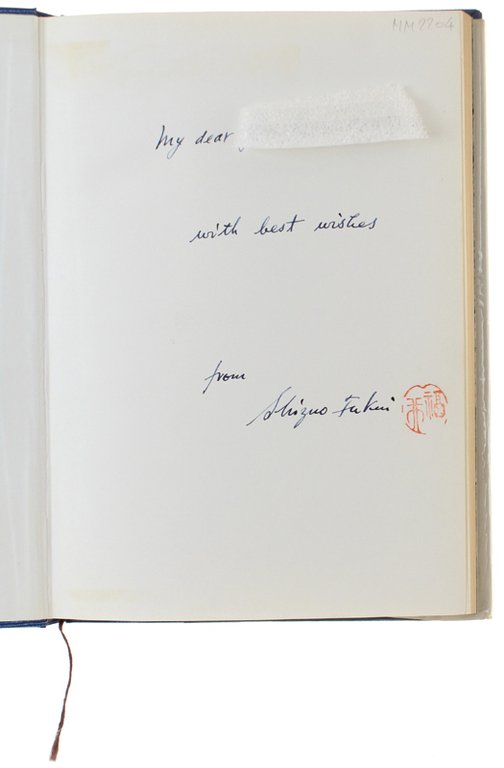 MM2204
My dear
with best wishes
from
Shizuo Fukui
福井